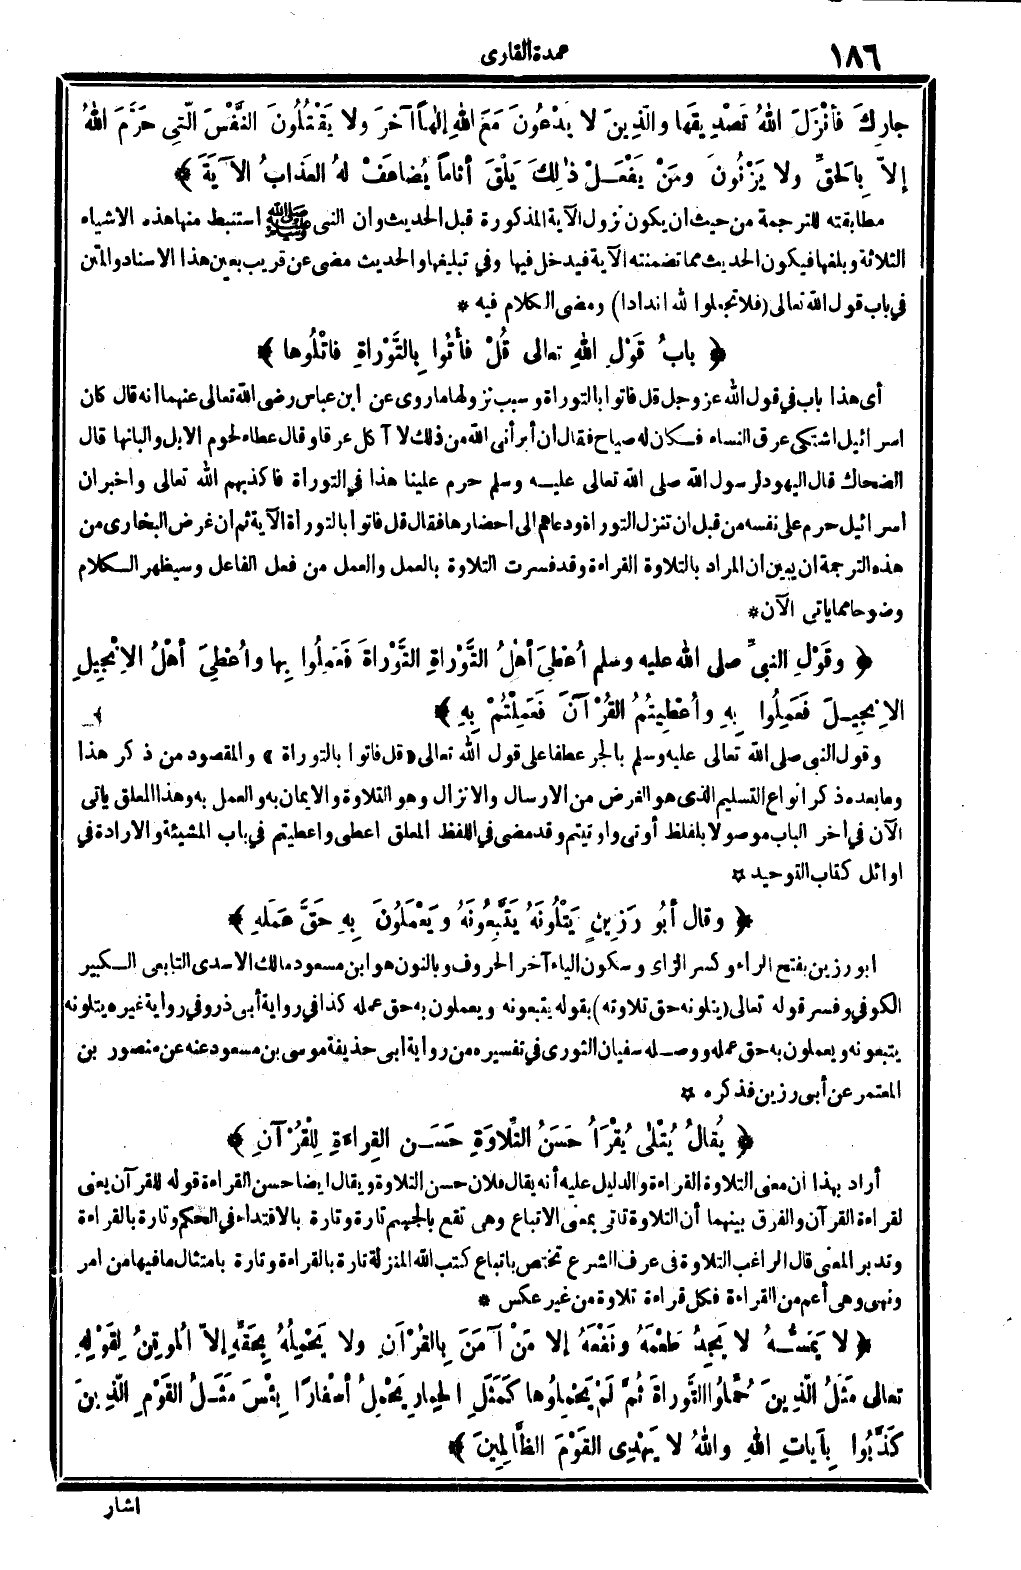 ١٨٦
عمدة القارى
جارِكَ فأنْزَلَ اللهُ تَصْدِيقَها والَّذِينَ لا يَدْعُونَ مَعَ اللهِ إلٰهاً آخَرَ ولا يَقْتُلُونَ النَّفْسَ الَّتِي حَرَّمَ اللهُ
إلاّ بِالحَقِّ ولا يَزْنُونَ ومَنْ يَفْعَـلْ ذٰلِكَ يَلْقَ أثاماً يُضاعَفْ لهُ العَذابُ الآيَةَ ﴾
مطابقته للترجمة من حيث ان يكون نزول الآية المذكورة قبل الحديث وان النبى ﷺ استنبط منها هذه الاشياء
الثلاثة وبلغها فيكون الحديث مما تضمنته الآية فيدخل فيها وفي تبليغها والحديث مضى عن قريب بعين هذا الاسناد والمتن
في باب قول الله تعالى (فلا تجعلوا لله اندادا) ومضى الكلام فيه *
﴿ بابُ قَوْلِ اللهِ تعالى قُلْ فأْتُوا بِالتَّوْراةِ فاتْلُوها ﴾
أى هذا باب في قول الله عز وجل قل فاتوا بالتوراة وسبب نزولها ما روى عن ابن عباس رضى الله تعالى عنهما انه قال كان
اسرائيل اشتكى عرق النساء فكان له صياح فقال ان أبرأنى الله من ذلك لا آكل عرقا وقال عطاء لحوم الابل والبانها قال
الضحاك قال اليهود لرسول الله صلى الله تعالى عليه وسلم حرم علينا هذا في التوراة فاكذبهم الله تعالى واخبر ان
اسرائيل حرم على نفسه من قبل ان تنزل التوراة ودعاهم الى احضارها فقال قل فاتوا بالتوراة الآية ثم ان غرض البخارى من
هذه الترجمة ان يبين ان المراد بالتلاوة القراءة وقد فسرت التلاوة بالعمل والعمل من فعل الفاعل وسيظهر الكلام
وضوحا مما ياتى الآن *
﴿ وقَوْلِ النبىِّ صلى الله عليه وسلم أُعْطِىَ أهْلُ التَّوْراةِ التَّوْراةَ فَعَمِلُوا بِها وأُعْطِىَ أهْلُ الإِنْجِيلِ
الإِنْجِيلَ فَعَمِلُوا بِهِ وأُعْطِيتُمُ القُرْآنَ فَعَمِلْتُمْ بِهِ ﴾
وقول النبى صلى الله تعالى عليه وسلم بالجر عطفا على قول الله تعالى «قل فاتوا بالتوراة» والمقصود من ذكر هذا
وما بعده ذكر انواع التسليم الذى هو الغرض من الارسال والانزال وهو التلاوة والايمان به والعمل به وهذا المعلق ياتى
الآن في آخر الباب موصولا بلفظ أوتى واوتيتم وقد مضى في اللفظ المعلق اعطى واعطيتم في باب المشيئة والارادة في
اوائل كتاب التوحيد *
﴿ وقال أبُو رَزِينٍ يَتْلُونَهُ يَتَّبِعُونَهُ ويَعْمَلُونَ بِهِ حَقَّ عَمَلِهِ ﴾
ابو رزين بفتح الراء وكسر الزاى وسكون الياء آخر الحروف وبالنون هو ابن مسعود مالك الاسدى التابعى الكبير
الكوفي وفسر قوله تعالى (يتلونه حق تلاوته) بقوله يتبعونه ويعملون به حق عمله كذا في رواية أبى ذر وفي رواية غيره يتلونه
يتبعونه ويعملون به حق عمله ووصله سفيان الثورى في تفسيره من رواية ابى حذيفة موسى بن مسعود عنه عن منصور بن
المعتمر عن أبى رزين فذكره *
﴿ يُقالُ يُتْلٰى يُقْرَأُ حَسَنُ التِّلاوَةِ حَسَـن القِراءَةِ لِلْقُرْآنِ ﴾
أراد بهذا ان معنى التلاوة القراءة والدليل عليه أنه يقال فلان حسن التلاوة ويقال ايضا حسن القراءة قوله للقرآن يعنى
لقراءة القرآن والفرق بينهما أن التلاوة تاتى بمعنى الاتباع وهى تقع بالجسم تارة وتارة بالاقتداء في الحكم وتارة بالقراءة
وتدبر المعنى قال الراغب التلاوة فى عرف الشرع تختص باتباع كتب الله المنزلة تارة بالقراءة وتارة بامتثال ما فيها من امر
ونهى وهى أعم من القراءة فكل قراءة تلاوة من غير عكس *
﴿ لا يَمَسُّـهُ لا يَجِدُ طَعْمَهُ ونَفْعَهُ إلا مَنْ آمَنَ بِالقُرْآنِ ولا يَحْمِلُهُ بِحَقِّهِ إلاّ المُوقِنُ لِقَوْلِهِ
تعالى مَثَلُ الَّذِينَ حُمِّلُوا التَّوْراةَ ثُمَّ لَمْ يَحْمِلُوها كَمَثَلِ الحِمارِ يَحْمِلُ أسْفارًا بِئْسَ مَثَـلُ القَوْمِ الَّذِينَ
كَذَّبُوا بِآياتِ اللهِ واللهُ لا يَهْدِى القَوْمَ الظَّالِمِينَ ﴾
اشار